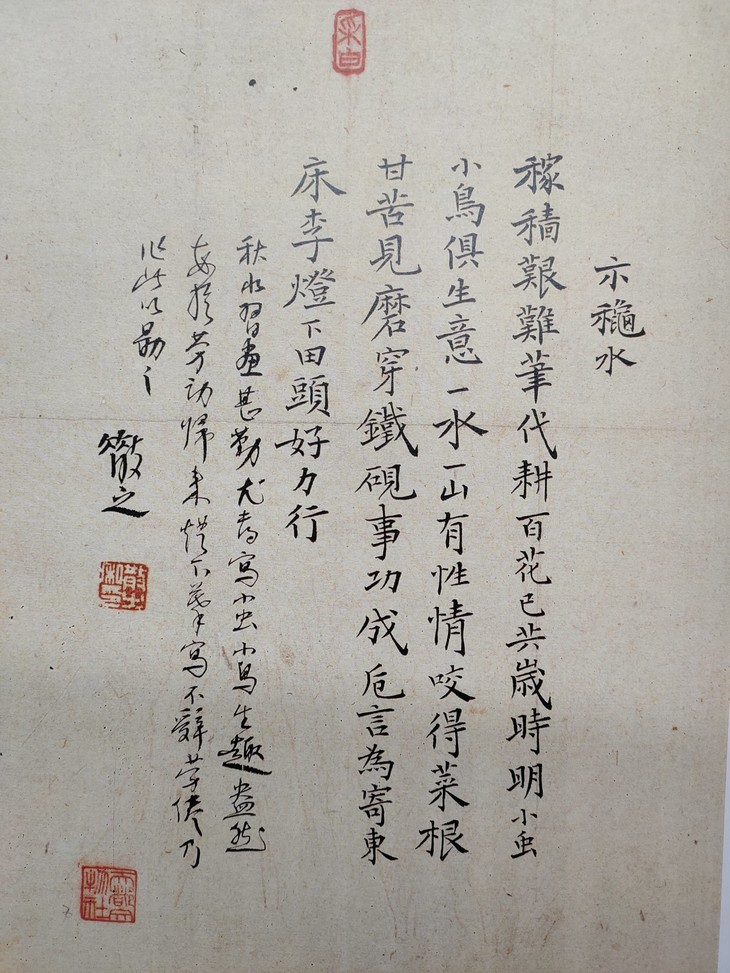 示穐水
稼穡艱難筆代耕百花已共歲時明小虫
小鳥俱生意一水一山有性情咬得菜根
甘苦見磨穿鐵硯事功成卮言為寄東
床李燈下田頭好力行
秋水習畫甚勤尤喜寫小虫小鳥生趣盎然
每於勞動歸來燈下摹寫不辭勞倦乃
作此以勖之
徹之